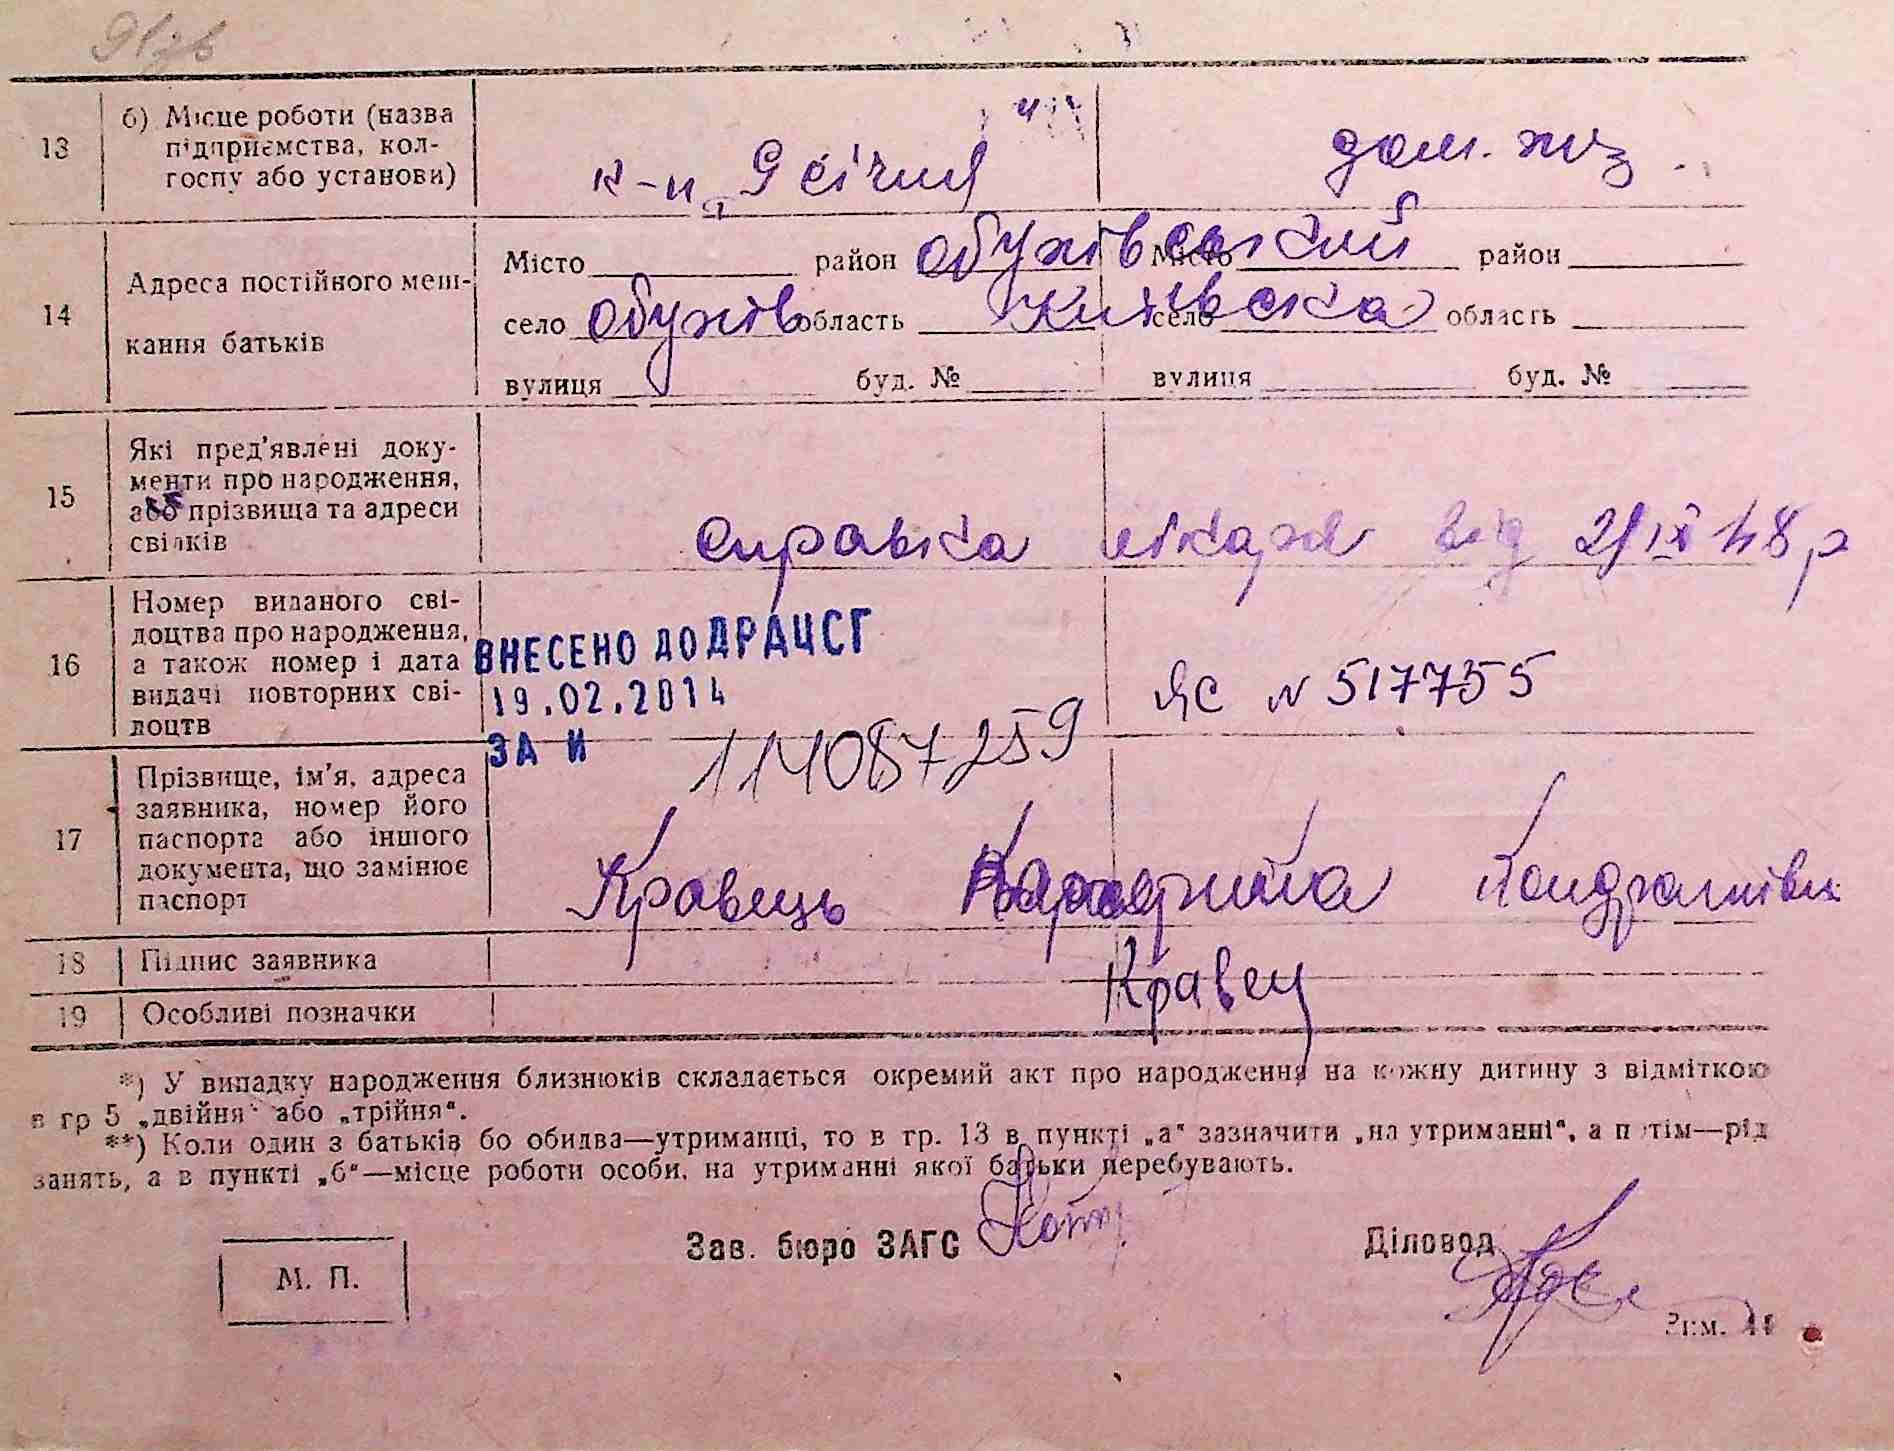 13
б) Місце роботи (назва
підприємства, кол-
госпу або установи)
к-п „9 січня"
дом. хоз.
14
Адреса постійного меш-
кання батьків
Місто район Обухівський Місто район
село Обухів область Київська село область
вулиця буд. № вулиця буд. №
15
Які пред'явлені доку-
менти про народження,
або прізвища та адреси
свідків
справка лікаря від 21/IX 48 р
16
Номер виданого сві-
доцтва про народження,
а також номер і дата
видачі повторних сві-
доцтв
ВНЕСЕНО ДО ДРАЦСГ
19.02.2014
ЗА И 114087259
ЯС N 517755
17
Прізвище, ім'я, адреса
заявника, номер його
паспорта або іншого
документа, що замінює
паспорт
Кравець Катерина Кондратівна
18
Підпис заявника
Кравец
19
Особливі позначки
*) У випадку народження близнюків складається окремий акт про народження на кожну дитину з відміткою
в гр 5 „двійня" або „трійня".
**) Коли один з батьків бо обидва—утриманці, то в гр. 13 в пункті „а" зазначити „на утриманні", а потім—рід
занять, а в пункті „б"—місце роботи особи, на утриманні якої батьки перебувають.
Зав. бюро ЗАГС
Діловод
М. П.